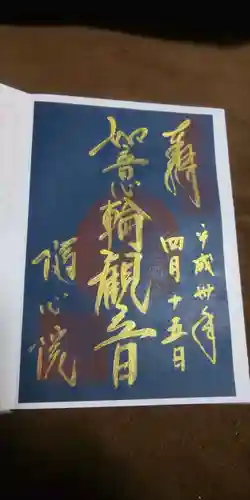 平成卅年
四月十五日
如意輪觀音
隨心院